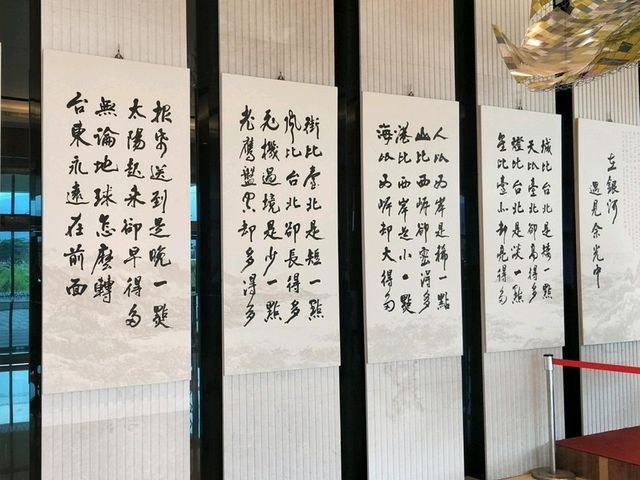 在銀河
遇見余光中
城比台北是矮一點
天比臺北卻高得多
燈比台北是淡一點
星比臺北卻亮得多
人比西岸是稀一點
山比西岸卻密得多
港比西岸是小一點
海比西岸卻大得多
街比臺北是短一點
風比台北卻長得多
飛機過境是少一點
老鷹盤空卻多得多
報紙送到是晚一點
太陽起來卻早得多
無論地球怎麼轉
台東永遠在前面